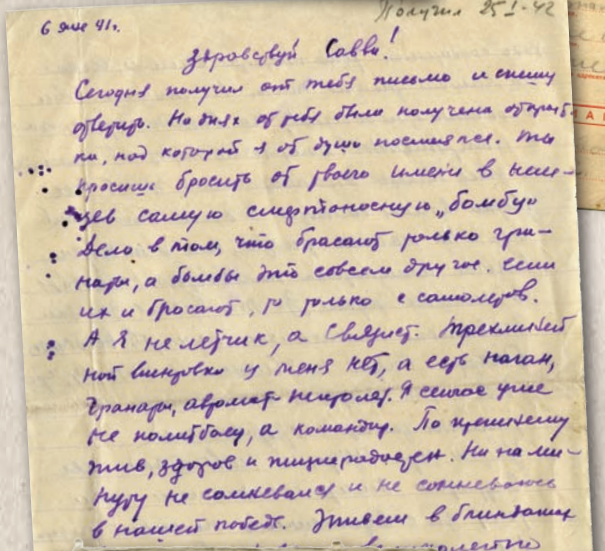 Получил 25 I-42
6 янв 41г.
Здравствуй Савва!
Сегодня получил от тебя письмо и спешу
ответить. На днях от тебя была получена открыт-
ка, над которой я от души посмеялся. Ты
просишь бросить от твоего имени в нем-
цев самую смертоносную „бомбу“
Дело в том, что бросают только гра-
наты, а бомбы это совсем другое. если
их и бросают, то только с самолетов.
А я не летчик, а связист. Трехлиней
ной винтовки у меня нет, а есть наган,
гранаты, автомат- пистолет. Я сейчас уже
не политбоец, а командир. По прежнему
жив, здоров и жизнерадостен. Ни на ми-
нуту не сомневался и не сомневаюсь
в нашей победе. Живем в блиндажах